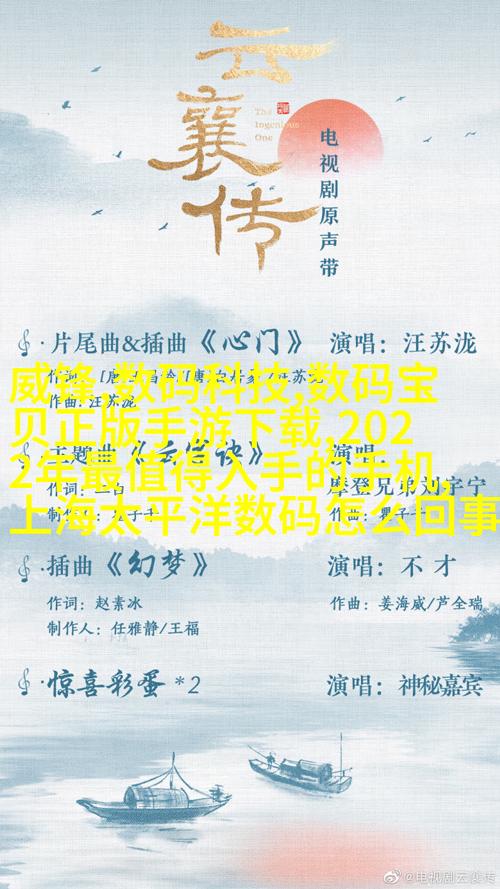 云襄传
The
Ingenious
One
电视剧原声带
片尾曲&插曲《心门》 演唱：汪苏泷
作曲：汪苏泷
威锋,数码科技,数码宝
贝正版手游下载,202
2年最值得入手的手机,
上海太平洋数码怎么回事
主题曲 演唱：
摩登兄弟刘宇宁
插曲《幻梦》 演唱：不才
作词：赵素冰 作曲：姜海威/芦全瑞
制作人：任雅静/王福
惊喜彩蛋*2 演唱：神秘嘉宾
@电视剧云襄传